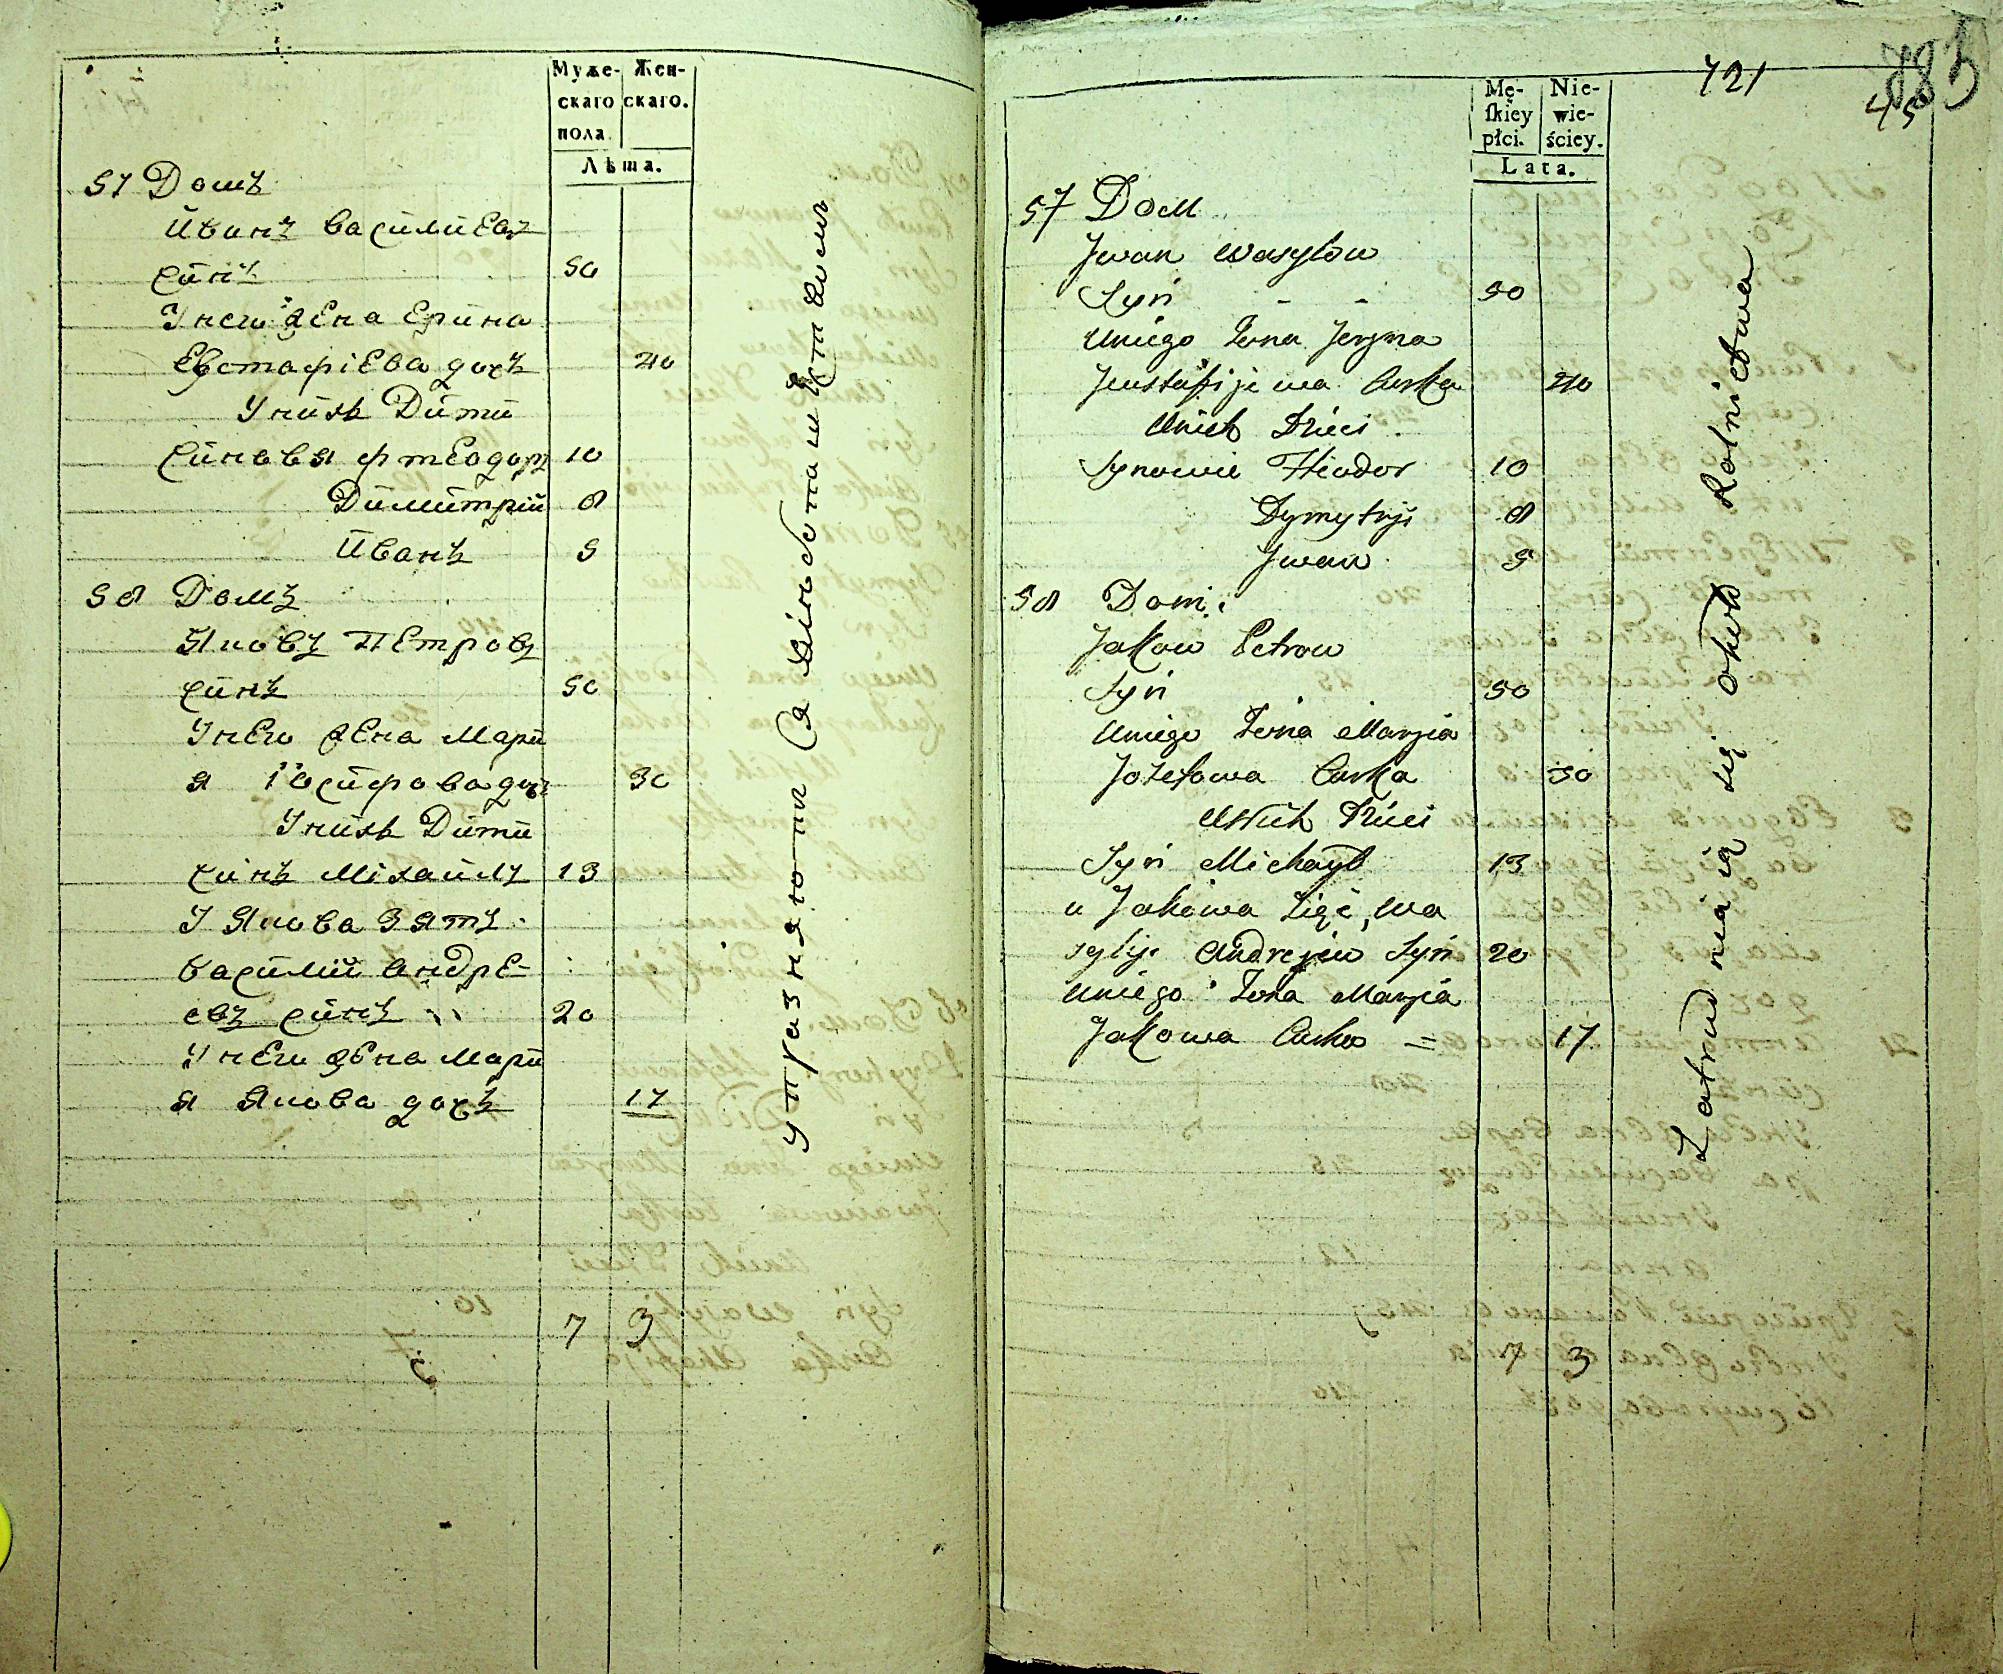 Муже- Жен-
скаго скаго.
пола.
Лѣта.
57 Домъ
Иванъ Василиевъ
синъ 50
У него жена Ерина
Евстафіева дочъ 40
У нихъ Дити
Синовя Фтеодоръ 10
Димитрій 8
Иванъ 5
58 Домъ
Яковъ Петровъ
синъ 50
У него жена Мари
я Іосифова дочъ 30
У нихъ Дити
синъ Міхаилъ 13
У Якова зять
Василий Андре-
евъ синъ 20
У него жена Мари
я Якова дочъ 17
7 3
721
45
Mę- Nie-
skiey wie-
płci. ściey.
Lata.
57 Dom
Jwan Wasylow
Syń - - 50
Uniego Żona Jeryna
Jewstafijewa Curka 40
Unich Dzieci
Synowie Fteodor 10
Dymytrji 8
Jwan 5
58 Dom
Jakow Petrow
Syń 50
Uniego Żona Maryia
Jozefowa Curka 30
Unich Dzieci
Syń Michaył 13
u Jakowa Zięć, Wa
sylij Andrejew Syń 20
Uniego Żona Maryia
Jakowa Curka = 17
Zatrudniaią się około Rolnictwa
7 3